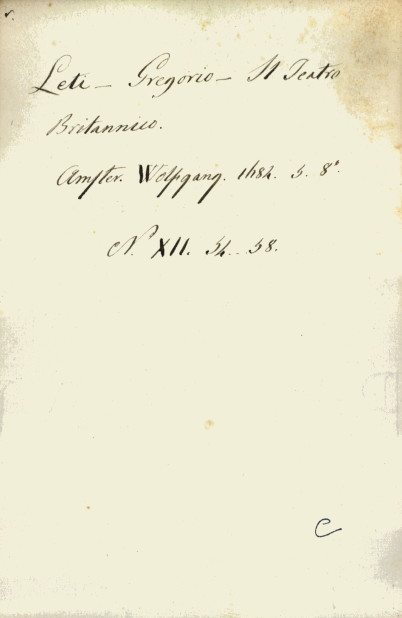 Leti – Gregorio – Il Teatro
Britannico.
Amster. Wolfgang. 1684. 5. 8°.
N.° XII. 54.. 58.
C